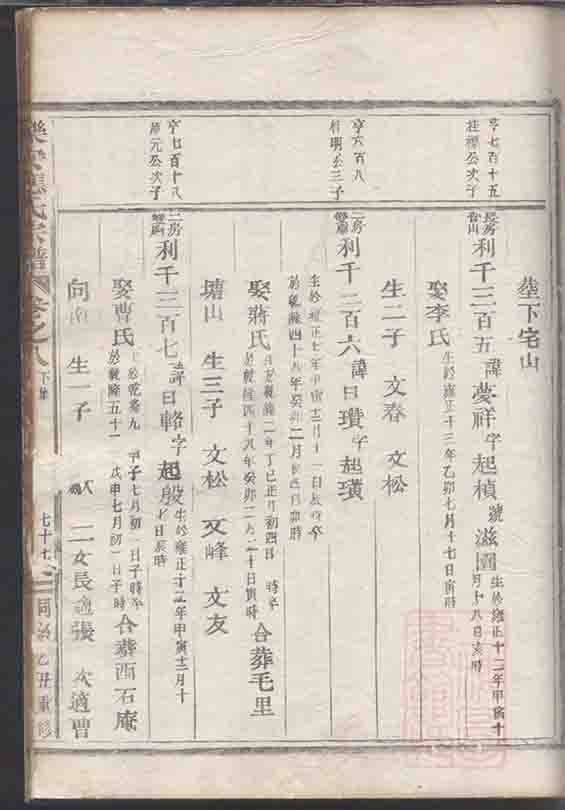 亨七百十五
桂標公次子
亨六百八
桂明公三子
亨七百十八
公次子
塋下宅山
長房
利千三百五 諱夢祥字起楨號滋圃 生於雍正十二年甲寅十
月十八日亥時
娶李氏 生於雍正十三年乙卯七月十七日寅時
生二子 文春 文松
二房
利千二百六 諱曰瓚字起璜
生於雍正七年 十二月十一日 時卒
於乾隆四十八年癸卯二月 日卯時
娶蔣氏 生於乾隆二年丁巳正月初四日 時卒
於乾隆四十八年癸卯二月二十日寅時 合葬毛里
塘山 生三子 文松 文峰 文友
二房
利千三百七 諱曰輅字起殷 生於雍正十二年甲寅十二月十
七日辰時
娶曹氏 生於乾隆九年甲子七月初一日子時卒
於乾隆五十一 戊申七月初一日子時 合葬酉石庵
向南 生一子 二女長適張 次適曹
氏宗譜 卷之八
七十七
同治乙丑重修